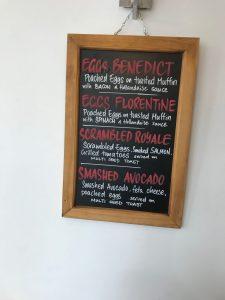 EGGS BENEDICT
Poached Eggs on toasted Muffin
with BACON & Hollandaise sauce
EGGS FLORENTINE
Poached Eggs on toasted Muffin
with SPINACH & Hollandaise sauce
SCRAMBLED ROYALE
Scrambled Eggs, Smoked SALMON,
Grilled tomatoes served on
MULTI SEED TOAST
SMASHED AVOCADO
Smashed Avocado, feta cheese,
poached eggs served on
MULTI SEED TOAST